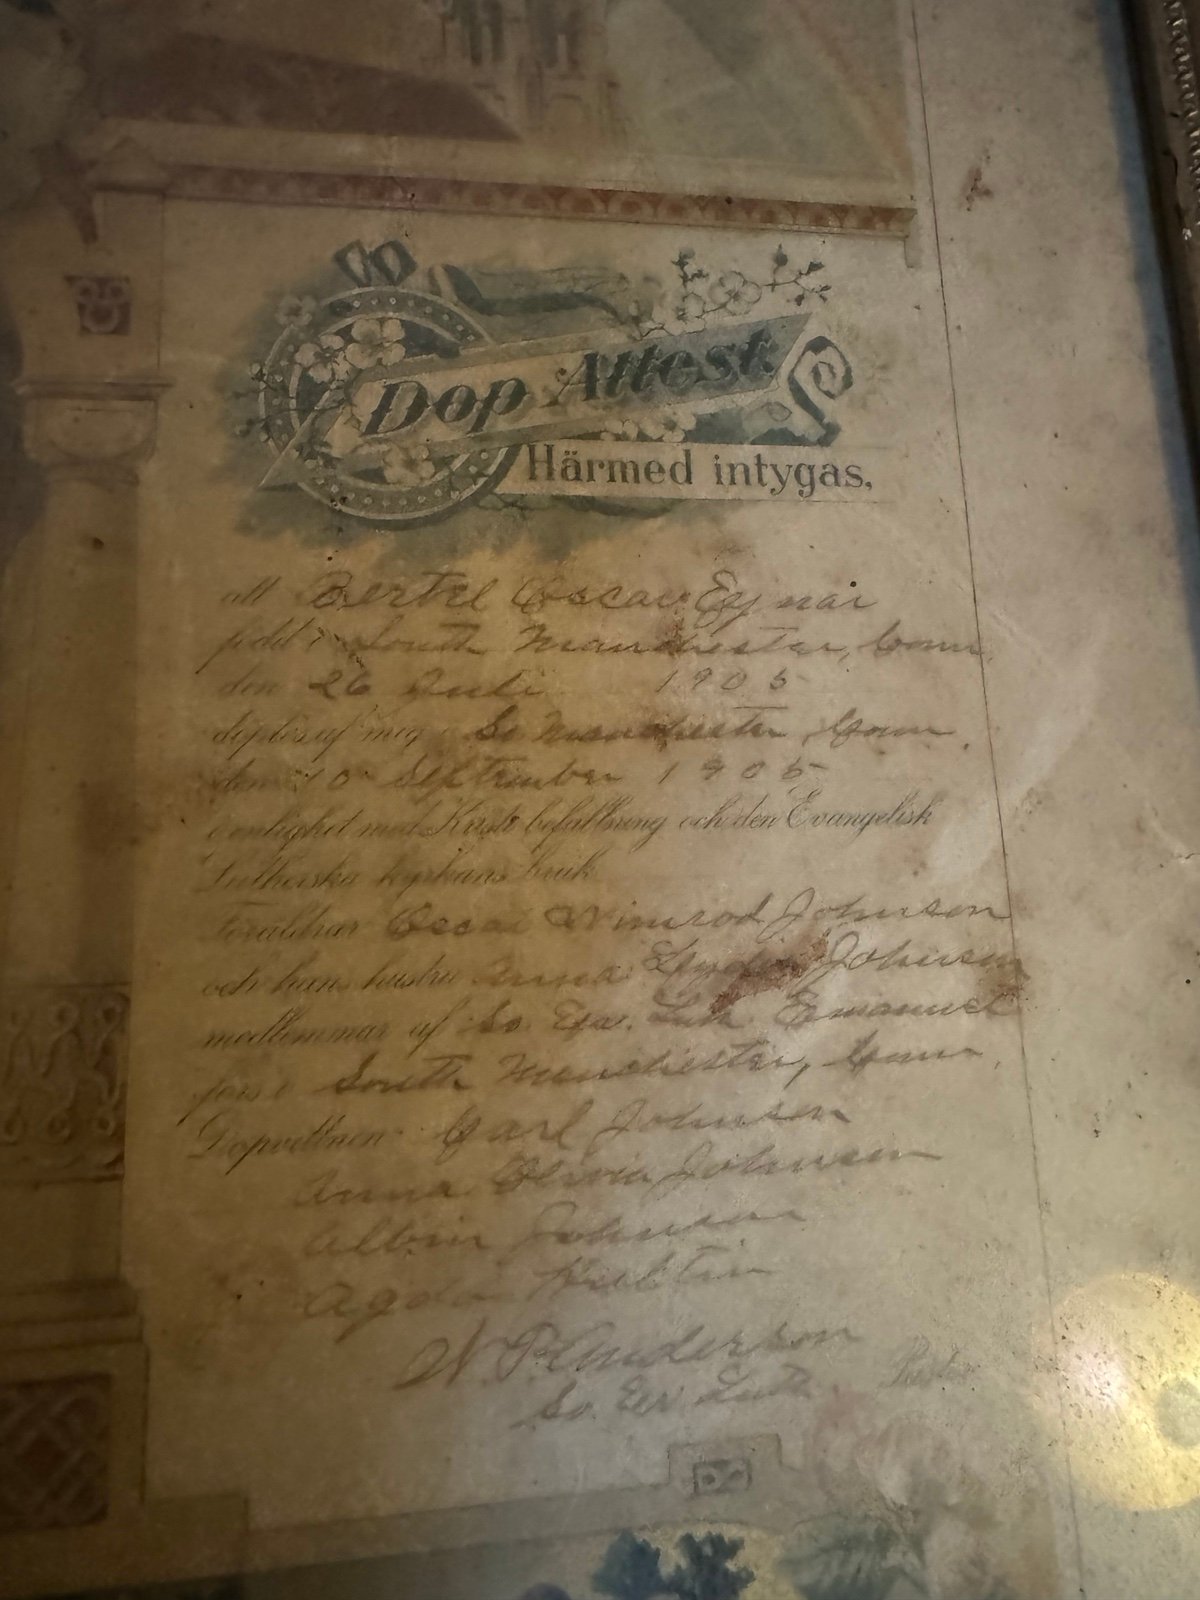 Dop Attest
Härmed intygas,
att Bertel Oscar Ejnar
född i South Manchester, Conn.
den 26 Juli 1905
döptes af mig i So. Manchester, Conn.
den 10 September 1905
i enlighet med Kristi befallning och den Evangelisk
Lutherska kyrkans bruk
Föräldrar Oscar Nimrod Johnson
och hans hustru Anna Johnson
medlemmar af Sv. Ev. Luth. Emanuel
förs i South Manchester, Conn.
Dopvittnen Carl Johnson
Anna Olivia Johnson
Albin Johnson
Agda Hultin
N. P. Anderson
Sv. Ev. Luth. Pastor